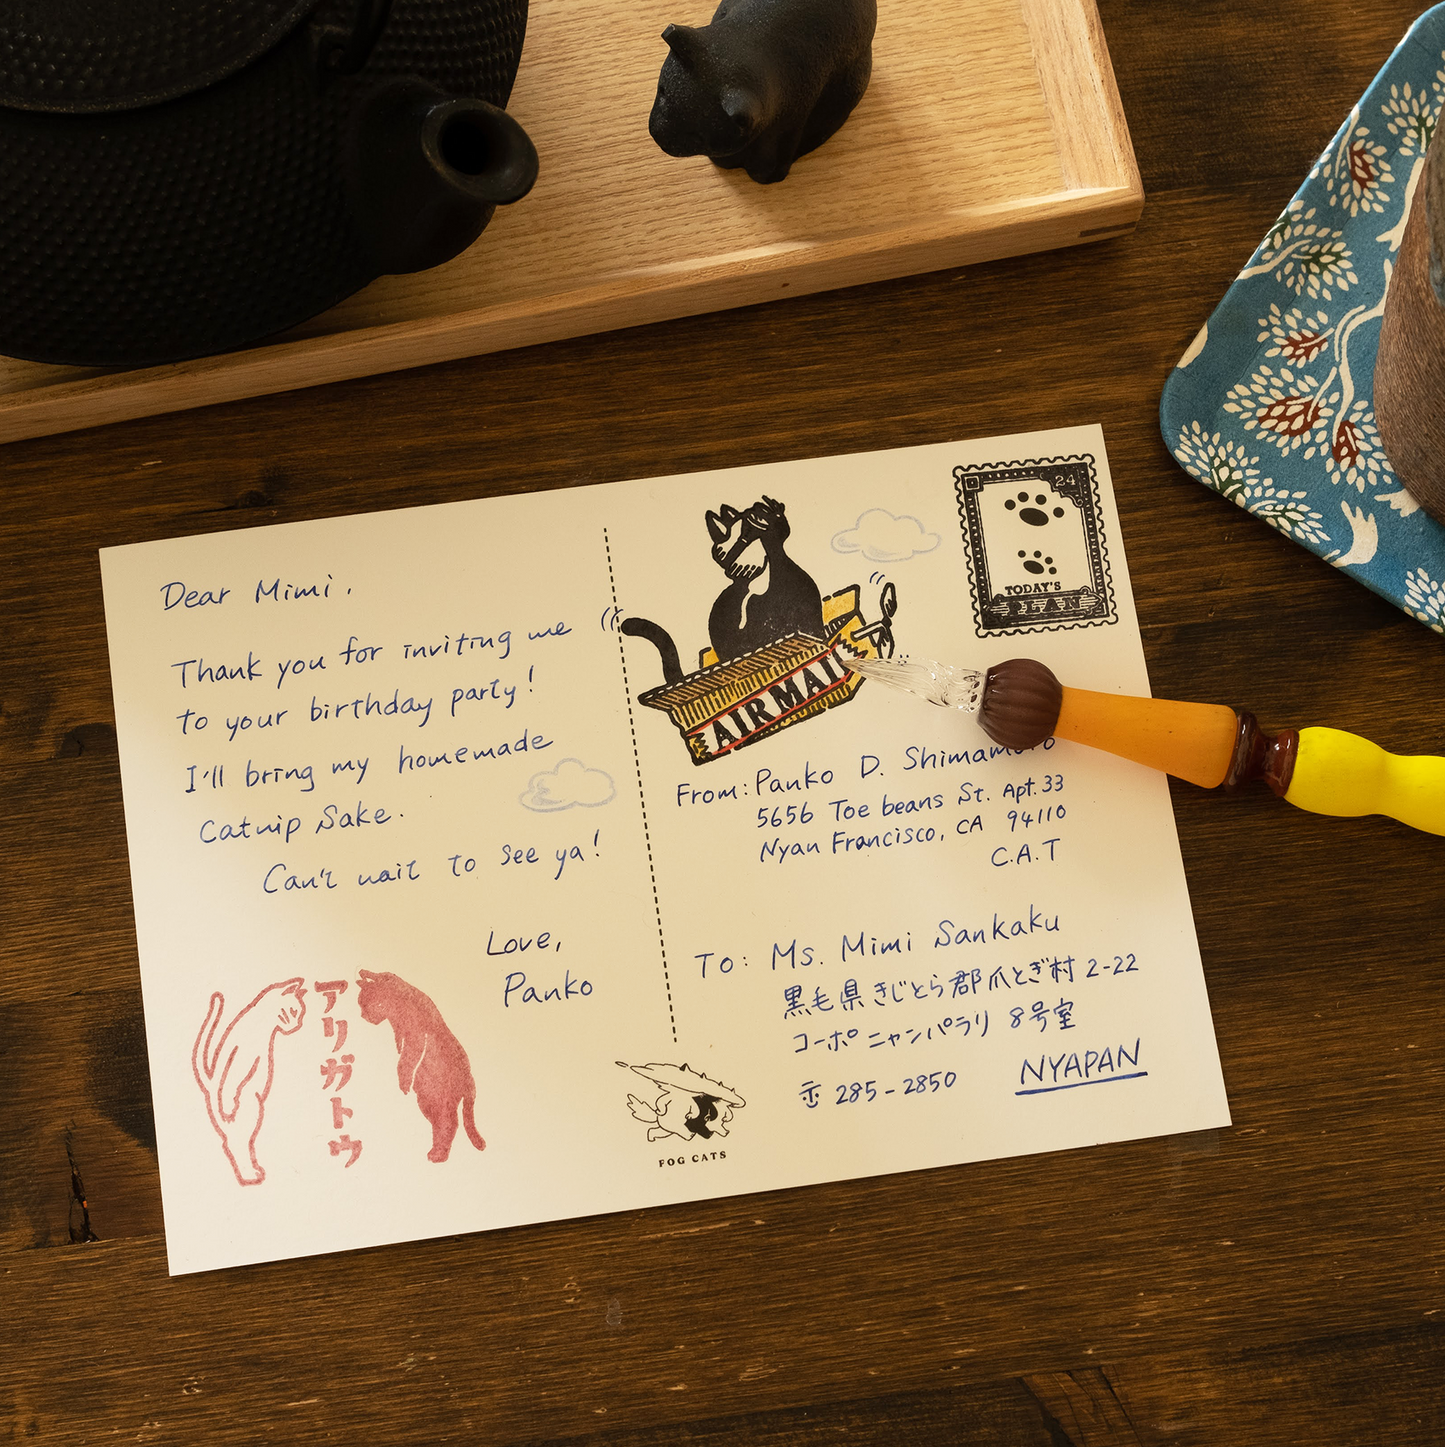 Dear Mimi,
Thank you for inviting me
to your birthday party!
I'll bring my homemade
Catnip Sake.
Can't wait to see ya!
Love,
Panko
アリガトウ
AIR MAIL
24
TODAY'S
PLAN
From: Panko D. Shimamoto
5656 Toe beans St. Apt. 33
Nyan Francisco, CA 94110
C.A.T
To: Ms. Mimi Sankaku
黒毛県きじとら郡爪とぎ村 2-22
コーポニャンパラリ 8号室
〠 285-2850
NYAPAN
FOG CATS